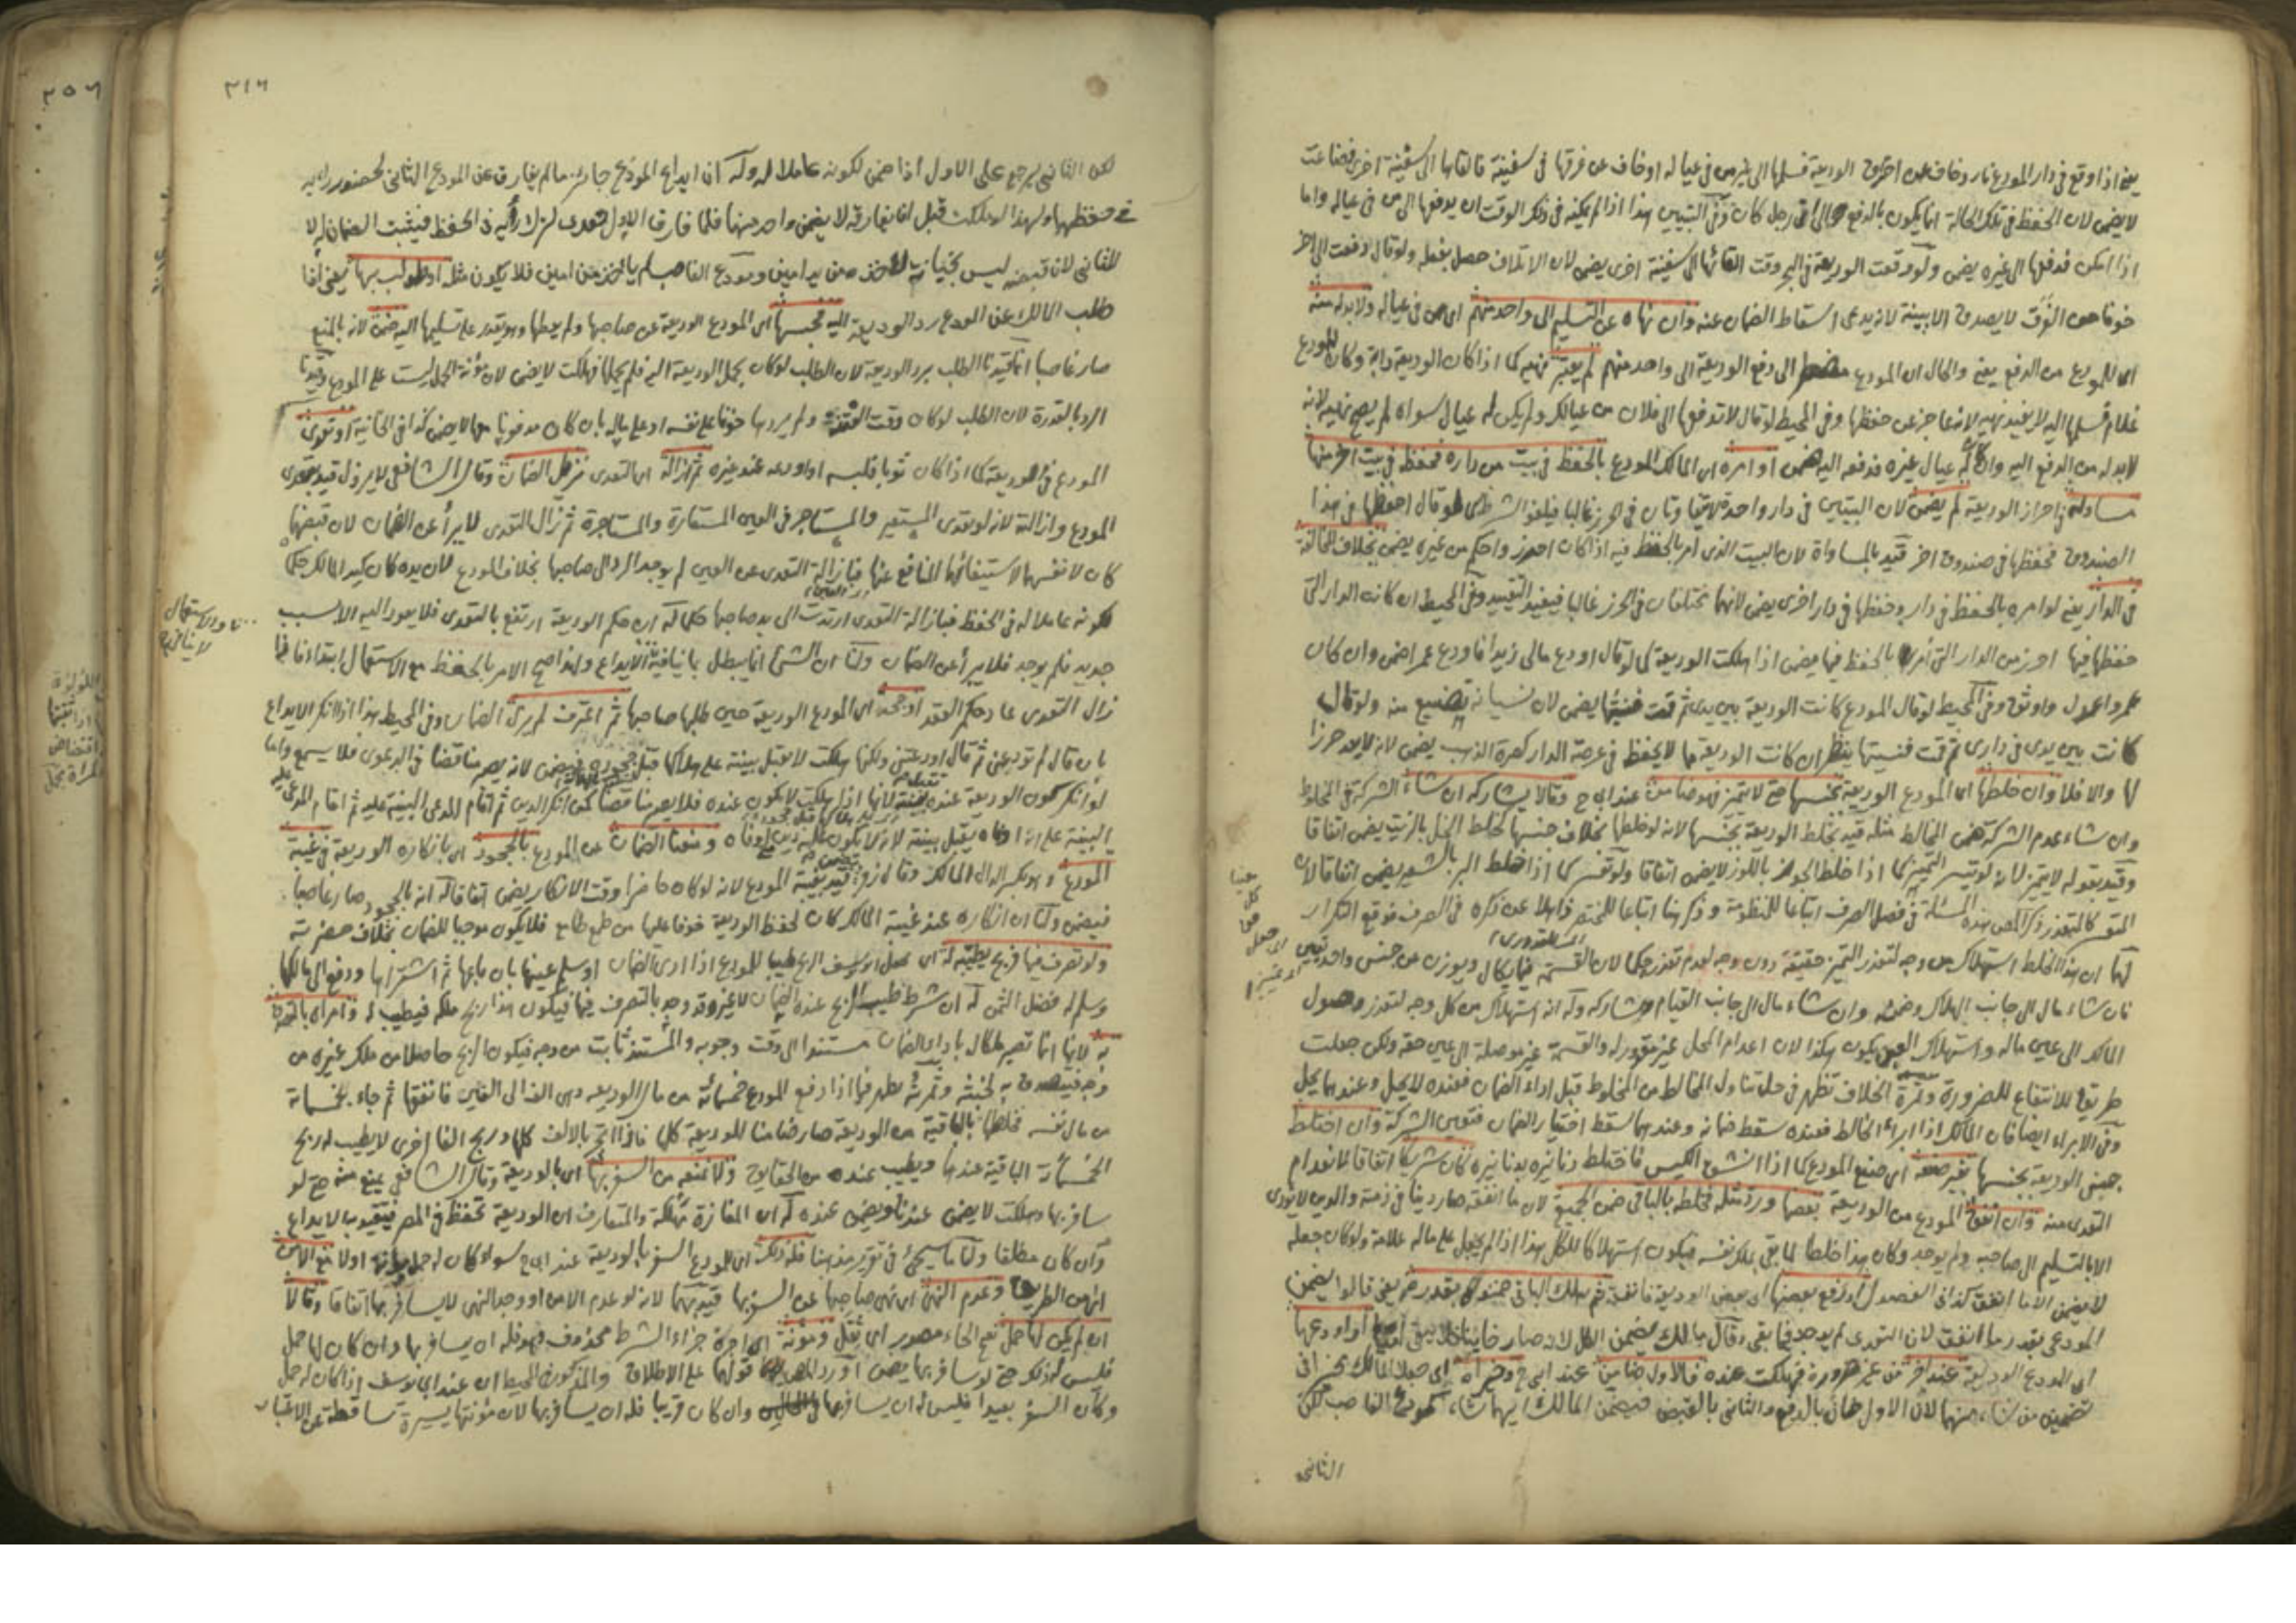 يعني اذا وقع في دار المودع نار وخاف عن احتراق الوديعة فسلمها الى غير من في عياله او خاف عن غرقها في سفينة فالقاها الى سفينة اخرى فضاعت
لا يضمن لان الحفظ في تلك الحالة انما يكون بالدفع الى اي رجل كان وفي التبيين هذا اذا لم يمكنه في ذلك الوقت ان يدفعها الى من في عياله واما
اذا امكن فدفعها الى غيره يضمن ولو وقعت الوديعة في البحر وقت القائها الى سفينة اخرى يضمن لان الاتلاف حصل بفعله ولو قال دفعت الى اخر
خوفا من الغرق لا يصدق الا ببينة لانه يدعي اسقاط الضمان عنه وان نهاه عن التسليم الى واحد منهم اي من في عياله ولا بد له منه
اي للمودع من الدفع يعني والحال ان المودع مضطر الى دفع الوديعة الى واحد منهم لم يعتبر نهيه كما اذا كان الوديعة دابة وكان للمودع
غلام فسلمها اليه لا يفيد نهيه لانه عاجز عن حفظها وفي المحيط لو قال لا تدفعها الى فلان من عيالك ولم يكن له عيال سواه لم يصح نهيه لانه
لا بد له من الدفع اليه وان كان له عيال غيره فدفعه اليه ضمن او امره اي المالك المودع بالحفظ في بيت من داره فحفظه في بيت اخر منها
مساو له في احراز الوديعة لم يضمن لان البيتين في دار واحدة لا يتفاوتان في الحرز غالبا فيلغو الشرط كما لو قال احفظها في هذا
الصندوق فحفظها في صندوق اخر قيد بالمساواة لان البيت الذي امر بالحفظ فيه اذا كان احرز واحكم من غيره يضمن بخلاف المخالفة
في الدار يعني لو امره بالحفظ في دار وحفظها في دار اخرى يضمن لانهما تختلفان في الحرز غالبا فيفيد التقييد وفي المحيط ان كانت الدار التي
حفظها فيها احرز من الدار التي امر بالحفظ فيها يضمن اذا هلكت الوديعة كما لو قال اودع مالي زيدا فاودع عمرا ضمن وان كان
عمرو اعدل واوثق وفي المحيط لو قال المودع كانت الوديعة بين يدي ثم قمت فنسيتها يضمن لان نسيانه تضييع منه ولو قال
كانت بين يدي في داري ثم قمت فنسيتها ينظر ان كانت الوديعة مما لا يحفظ في عرصة الدار كصرة الذهب يضمن لانه لا يعد حرزا
لها والا فلا وان خلطها اي المودع الوديعة بجنسها حتى لا تتميز فهو ضامن عند ابي ح وقالا يشاركه ان شاء الشركة في المخلوط
وان شاء عدم الشركة ضمن الخالط مثله قيد بخلط الوديعة بجنسها لانه لو خلطها بخلاف جنسها كخلط الخل بالزيت يضمن اتفاقا
وقيد بقوله لا يتميز لانه لو تيسر التمييز كما اذا خلط الجوز باللوز لا يضمن اتفاقا ولو تعسر كما اذا خلط البر بالشعير يضمن اتفاقا لان
المتعسر كالمتعذر ذكر المص هذه المسئلة في فصل الصرف اتباعا للمنظومة وذكرها اتباعا للمختصر ذاهلا عن ذكره في الصرف فوقع التكرار
لهما ان هذا الخلط استهلاك من وجه لتعذر التمييز حقيقة دون وجه لعدم تعذر حكما لان القسمة فيما يكال ويوزن من جنس واحد تعيين
فان شاء مال الى جانب الهلاك وضمنه وان شاء مال الى جانب القيام وشاركه وله انه استهلاك من كل وجه لتعذر وصول
المالك الى عين ماله واستهلاك العين يكون هكذا لان اعدام المحل غير مقدور له والقسمة غير موصلة الى عين حقه ولكن جعلت
طريقا للانتفاع للضرورة وثمرة الخلاف تظهر في حل تناول الخالط من المخلوط قبل اداء الضمان فعنده لا يحل وعندهما يحل
وفي الابراء ايضا فان المالك اذا ابراء الخالط فعنده سقط ضمانه وعندهما سقط اختيار الضمان فتعين الشركة وان اختلط
جنس الوديعة بجنسها بغير صنعه اي صنع المودع كما اذا انشق الكيس فاختلط دنانيره بدنانيره كان شريكا اتفاقا لانعدام
التعدي منه وان انفق المودع من الوديعة بعضها ورد مثله فخلطه بالباقي ضمن الجميع لان ما انفقه صار دينا في ذمته والدين لا يؤدى
الا بالتسليم الى صاحبه ولم يوجد وكان هذا خلطا لما بقي بملك نفسه فيكون استهلاكا للكل هذا اذا لم يجعل على ماله علامة ولو كان جعله
لا يضمن الا ما انفق كذا في الفصول او دفع بعضها اي بعض الوديعة فانفقه ثم هلك الباقي ضمنوه بقدره يعني قالوا يضمن
المودع بقدر ما انفق لان التعدي لم يوجد فيما بقي وقال مالك يضمن الكل لانه صار خائنا فلا يبقى امينا او اودعها
اي المودع الوديعة عند اخر من غير ضرورة فهلكت عنده فالاول ضامن عند ابي ح وخيراه اي جعلا المالك مخيرا في
تضمين من شاء منهما لان الاول خان بالدفع والثاني بالقبض فيضمن المالك ايهما شاء كمودع الغاصب لكن
الثاني
٢١٦
لكن الثاني يرجع على الاول اذا ضمن لكونه عاملا له وله ان ايداع المودع جائز ما لم يفارق عن المودع الثاني لحضور رايه
في حفظها ولهذا لو هلكت قبل ان يفارقه لا يضمن واحد منهما فلما فارق الاول تعدى لتركه رايه في الحفظ فيثبت الضمان له لا
للثاني لان قبضه ليس بجناية لاخذه من يد امين ومودع الغاصب لم ياخذ من امين فلا يكون مثله او طولب بها يعني اذا
طلب المالك عن المودع رد الوديعة اليه فحبسها اي المودع الوديعة عن صاحبها ولم يعطها وهو يقدر على تسليمها اليه ضمن لانه بالمنع
صار غاصبا انما قيدنا الطلب برد الوديعة لان الطلب لو كان بحمل الوديعة اليه فلم يحملها فهلكت لا يضمن لان مؤنة الحمل ليست على المودع وقيدنا
الرد بالقدرة لان الطلب لو كان وقت الفتنة ولم يردها خوفا على نفسه او على ماله بان كان مدفونا معها لا يضمن كذا في الخانية او تعدى
المودع في الوديعة كما اذا كان ثوبا فلبسه او اودعه عند غيره ثم ازاله اي التعدي نزيل الضمان وقال الشافعي لا يزول قيد بتعدي
المودع وازالته لانه لو تعدى المستعير والمستاجر في العين المستعارة والمستاجرة ثم زال التعدي لا يبرأ عن الضمان لان قبضهما
كان لانفسهما لاستيفائهما المنافع عنها فبازالة التعدي عن العين لم يوجد الرد الى صاحبها بخلاف المودع لان يده كان كيد المالك حكما
لكونه عاملا له في الحفظ فبازالة التعدي ارتدت الى يد صاحبها حكما له ان حكم الوديعة ارتفع بالتعدي فلا يعود اليه الا بسبب
جديد فلم يوجد فلا يبرأ عن الضمان ولنا ان الشئ انما يبطل بما ينافيه الايداع ولهذا صح الامر بالحفظ مع الاستعمال ابتداء فاذا
زال التعدي عاد حكم العقد او جحد اي المودع الوديعة حين طلبها صاحبها ثم اعترف لم يزل الضمان وفي المحيط هذا اذا انكر الايداع
بان قال لم تودعني ثم قال اودعتني ولكنها هلكت لا يقبل بينة على هلاكها قبل جحوده فيضمن لانه يصير مناقضا في الدعوى فلا يسمع واما
لو انكر كون الوديعة عنده لانها اذا هلكت لا يكون عنده فلا يصير مناقضا كمن انكر الدين ثم اقام المدعي البينة عليه ثم اقام المدعى
البينة على انه اوفاه يقبل بينة لانه لا يكون عليه دين لو اوفاه ومنعنا الضمان عن المودع بالجحود اي بانكاره الوديعة في غيبة
المودع وهو بكسر الدال المالك وقال زفر يضمن قيد بغيبة المودع لانه لو كان حاضرا وقت الانكار يضمن اتفاقا له انه بالجحود صار غاصبا
فيضمن ولنا ان انكاره عند غيبة المالك كان لحفظ الوديعة خوفا عليها من طمع طامع فلا يكون موجبا للضمان بخلاف حضرته
ولو تصرف فيها فربح يطيبه له اي جعل ابو يوسف الربح طيبا للمودع اذا ادى الضمان او سلم عينها بان باعها ثم اشتراها ودفع الى مالكها
وسلم له فضل الثمن له ان شرط طيب الربح عنده الضمان لا غير وقد وجد بالتصرف فيها فيكون هذا ربح ملكه فيطيب له وامرا بالتصدق
به لانها انما تصير ملكا له باداء الضمان مستندا الى وقت وجوبه والمستند ثابت من وجه فيكون الربح حاصلا من ملك غيره من
وجه فيتصدق به لخبثه وثمرته يظهر فيما اذا دفع المودع خمسمائة من مال الوديعة وهي الف الى الغير فانفقها ثم جاء بخمسمائة
من مال نفسه فخلطها بالباقية من الوديعة صار ضامنا للوديعة كلها فاذا اتجر بالالف كلها وربح الفا اخرى لا يطيب له ربح
الخمسمائة الباقية عندهما ويطيب عنده من الحقايق ولا نمنعه من السفر بها اي بالوديعة وقال الشافعي يمنع منه حتى لو
سافر بها وهلكت لا يضمن عندنا ويضمن عنده له ان المفازة مهلكة والمتعارف ان الوديعة تحفظ في المصر فيتقيد به الايداع
وان كان مطلقا ولنا ما سيجئ في تقرير مذهبنا فله ذلك اي للمودع السفر بالوديعة عند ابي ح سواء كان له حمل ومؤنة او لا مع الامن
اي امن الطريق وعدم النهي اي نهي صاحبها عن السفر بها قيد بهما لانه لو عدم الامن او وجد النهي لا يسافر بها اتفاقا وقالا
ان لم يكن لها حمل بفتح الحاء مصدر اي ثقل ومؤنة اي اجرة جزاء الشرط محذوف فهو فله ان يسافر بها وان كان لها حمل
فليس له ذلك حتى لو سافر بها يضمن اورد المص قولهما على الاطلاق والمذكور في المحيط ان عند ابي يوسف اذا كان له حمل
وكان السفر بعيدا فليس له ان يسافر بها وان كان قريبا فله ان يسافر بها لان مؤنتها يسيرة ساقطة عن الاعتبار